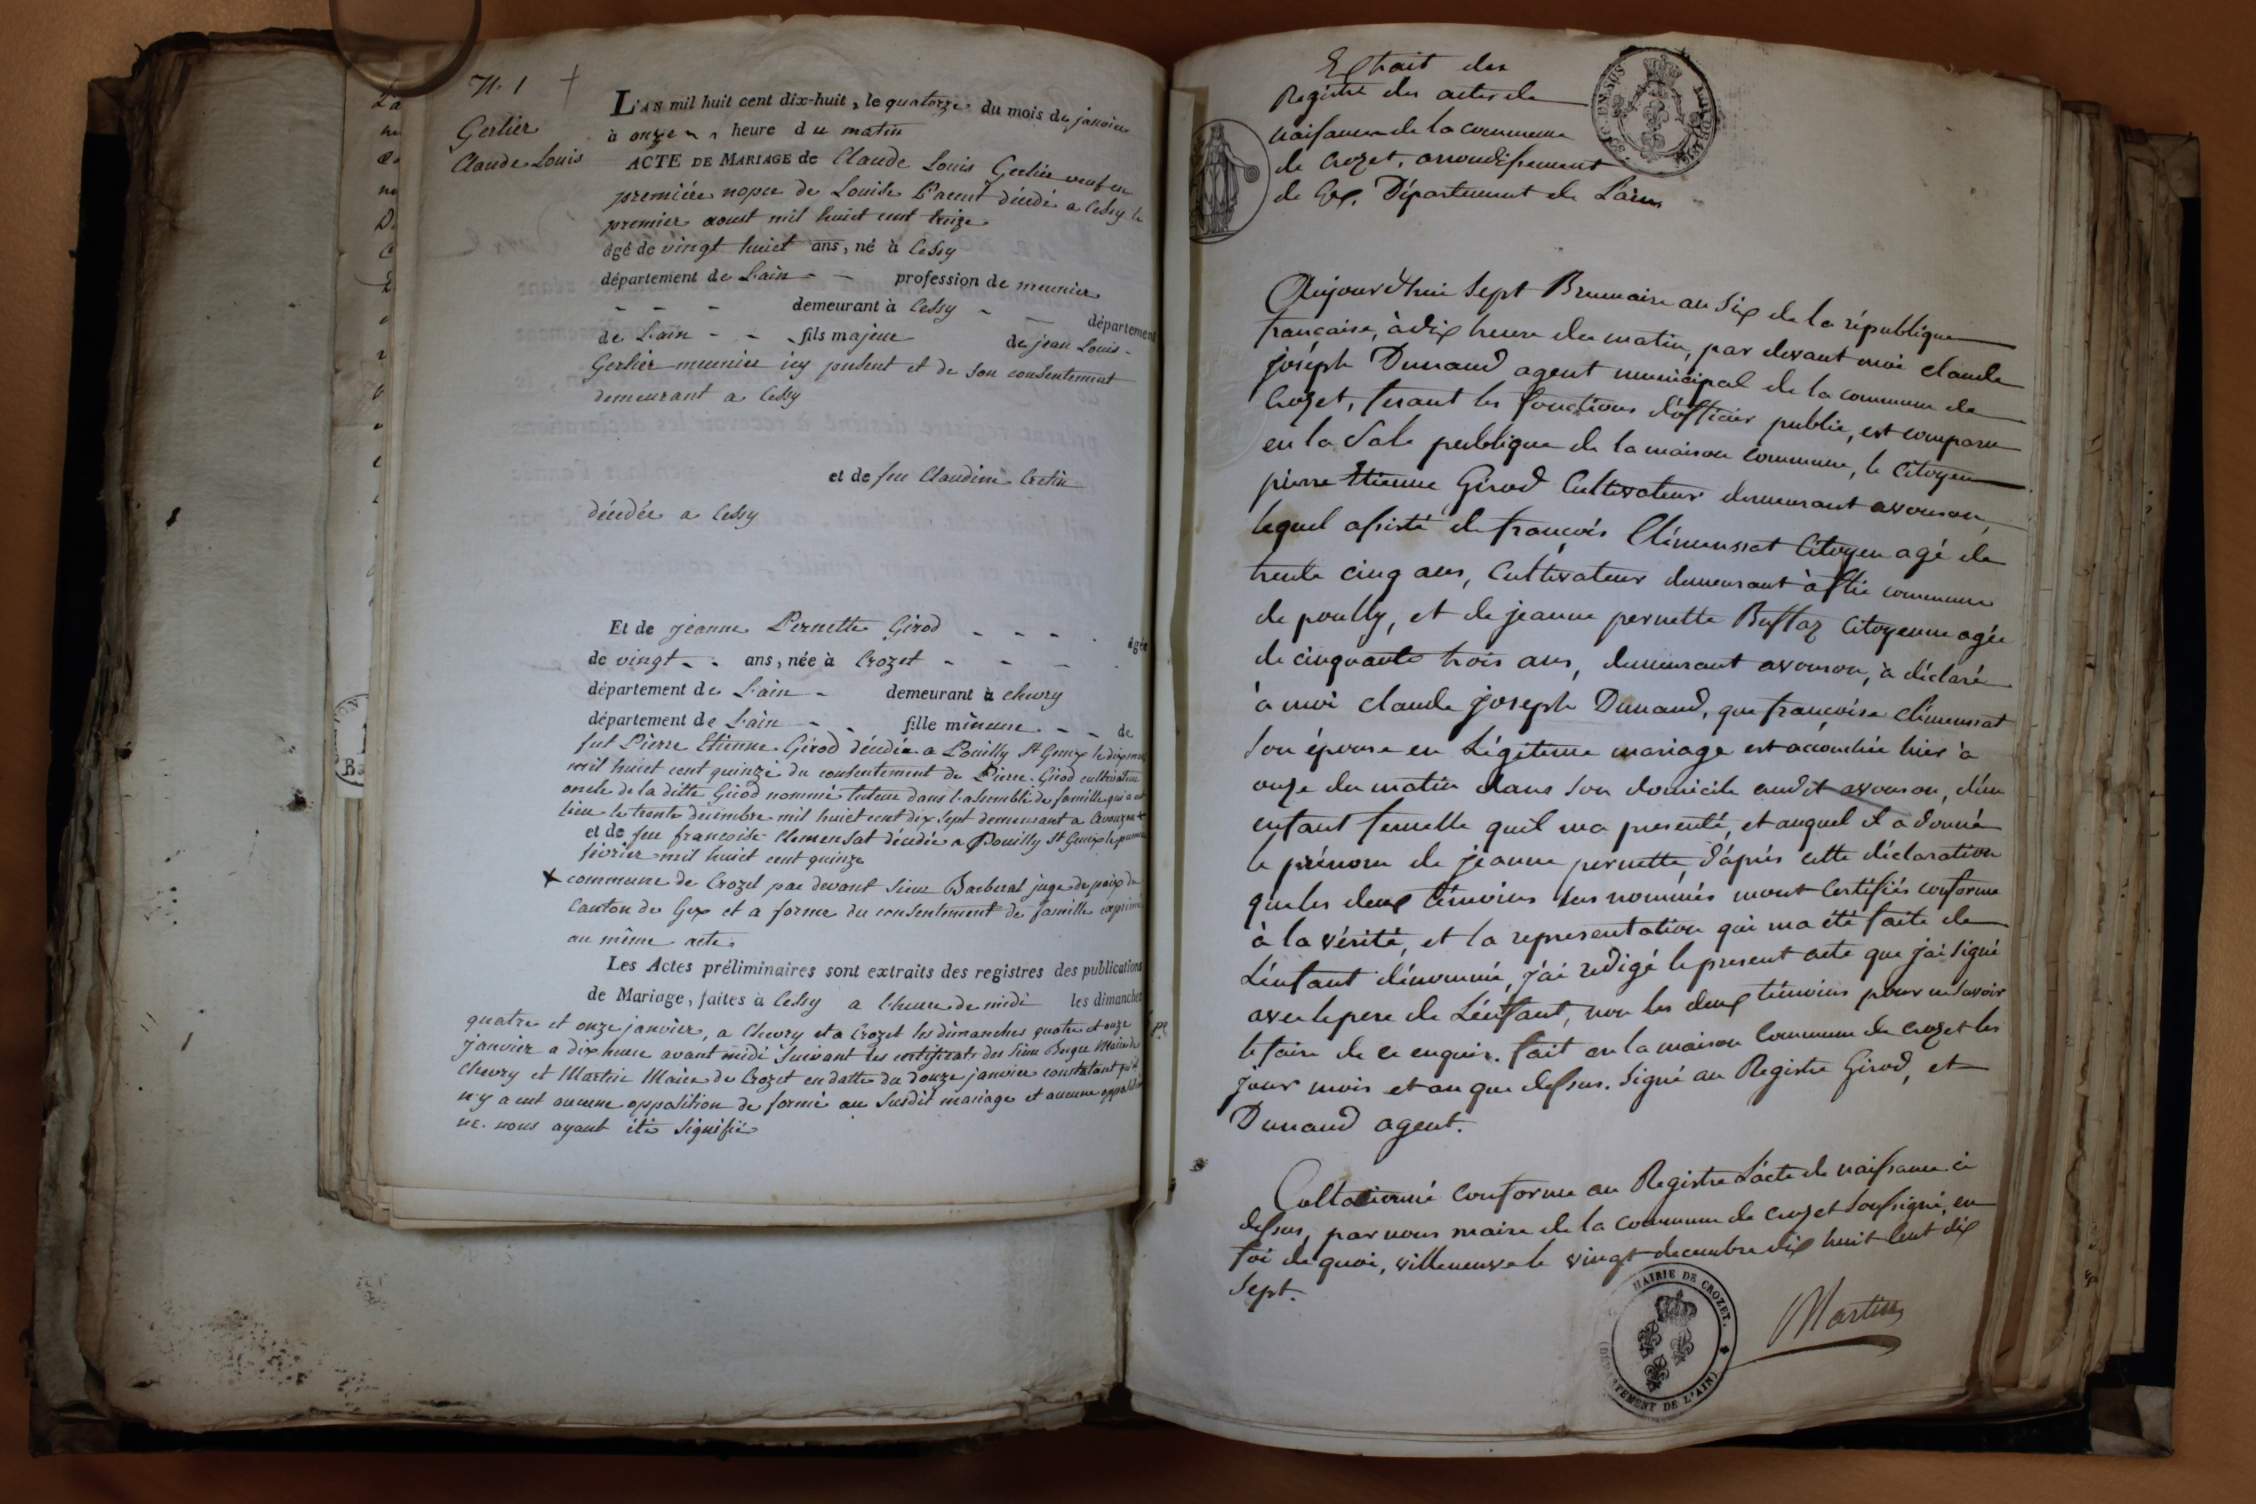 N. 1
Gerlier
Claude Louis
L'AN mil huit cent dix-huit, le quatorze du mois de janvier
à onze heure du matin
ACTE DE MARIAGE de Claude Louis Gerlier veuf en
première nopce de Louise Parent décédé a Cessy le
premier aoust mil huict cent treize
âgé de vingt huict ans, né à Cessy
département de L'ain - - profession de meunier
- - - demeurant à Cessy - - département
de L'ain - - fils majeur de jean Louis
Gerlier meunier icy present et de son consentement
demeurant a Cessy
et de feu Claudine Cretin
décédée a Cessy
Et de jeanne Pernette Girod - - - - âgée
de vingt - - ans, née à Crozet - - - -
département de L'ain - demeurant à chevry
département de L'ain - - fille mineure - - de
fut Pierre Etienne Girod décédé a Pouilly St Genix le dix mars
mil huict cent quinze du consentement de Pierre Girod cultivateur
oncle de la ditte Girod nommé tuteur dans l'assemblé de famille qui a eut
lieu le trente decembre mil huict cent dix sept demeurant a Avouzon +
et de feu francoise Clemensat décédée a Pouilly St Genix le premier
février mil huict cent quinze
+ commune de Crozet par devant Sieur Barberat juge de paix du
canton de Gex et a forme du consentement de famille exprimé
au même acte
Les Actes préliminaires sont extraits des registres des publications
de Mariage, faites à Cessy a l'heure de midi les dimanches
quatre et onze janvier, a Chevry et a Crozet les dimanches quatre et onze
janvier a dix heure avant midi suivant les certificats des Sieur Maire de
Chevry et Martin Maire de Crozet en datte du douze janvier constatant qu'il
n'y a eut aucune opposition de formé au susdit mariage et aucune opposition
ne nous ayant été signifié
Extrait des
Registre des actes de
naissance de la commune
de Crozet, arrondissement
de Gex, Département de L'ain
Aujourd'hui Sept Brumaire an Six de la république
française, à dix heure du matin, par devant moi claude
joseph Dunand agent municipal de la commune de
Crozet, faisant les fonctions d'officier public, est comparu
en la Sale publique de la maison commune, le Citoyen
pierre Etienne Girod Cultivateur demeurant avouson,
lequel assisté de françois Clémensat Citoyen agé de
trente cinq ans, Cultivateur demeurant à flie commune
de pouilly, et de jeanne pernette Buffaz Citoyenne agée
de cinquante trois ans, demeurant avouson, à déclaré
à moi claude joseph Dunand, que françoise clémensat
Son épouse en Légitime mariage est accouchée hier à
onze du matin dans son domicile audit avouson, d'un
enfant femelle quil ma presenté, et auquel il a donné
le prénom de jeanne pernette, d'après cette déclaration
que les deux témoins sus nommés mont Certifiés conforme
à la vérité, et la representation qui ma été faite de
L'enfant dénommé, j'ai redigé le present acte que j'ai signé
avec le pere de L'enfant, non les deux témoins pour ne savoir
le faire de ce enquis. fait en la maison Commune de crozet les
jour mois et an que dessus. Signé au Registre Girod, et
Dunand agent.
Collationné conforme au Registre L'acte de naissance ci
dessus, par nous maire de la commune de crozet Soussigné, en
foi de quoi, villeneuve le vingt decembre dix huit Cent dix
Sept.
MAIRIE DE CROZET.
(DÉPARTEMENT DE L'AIN)
Martin